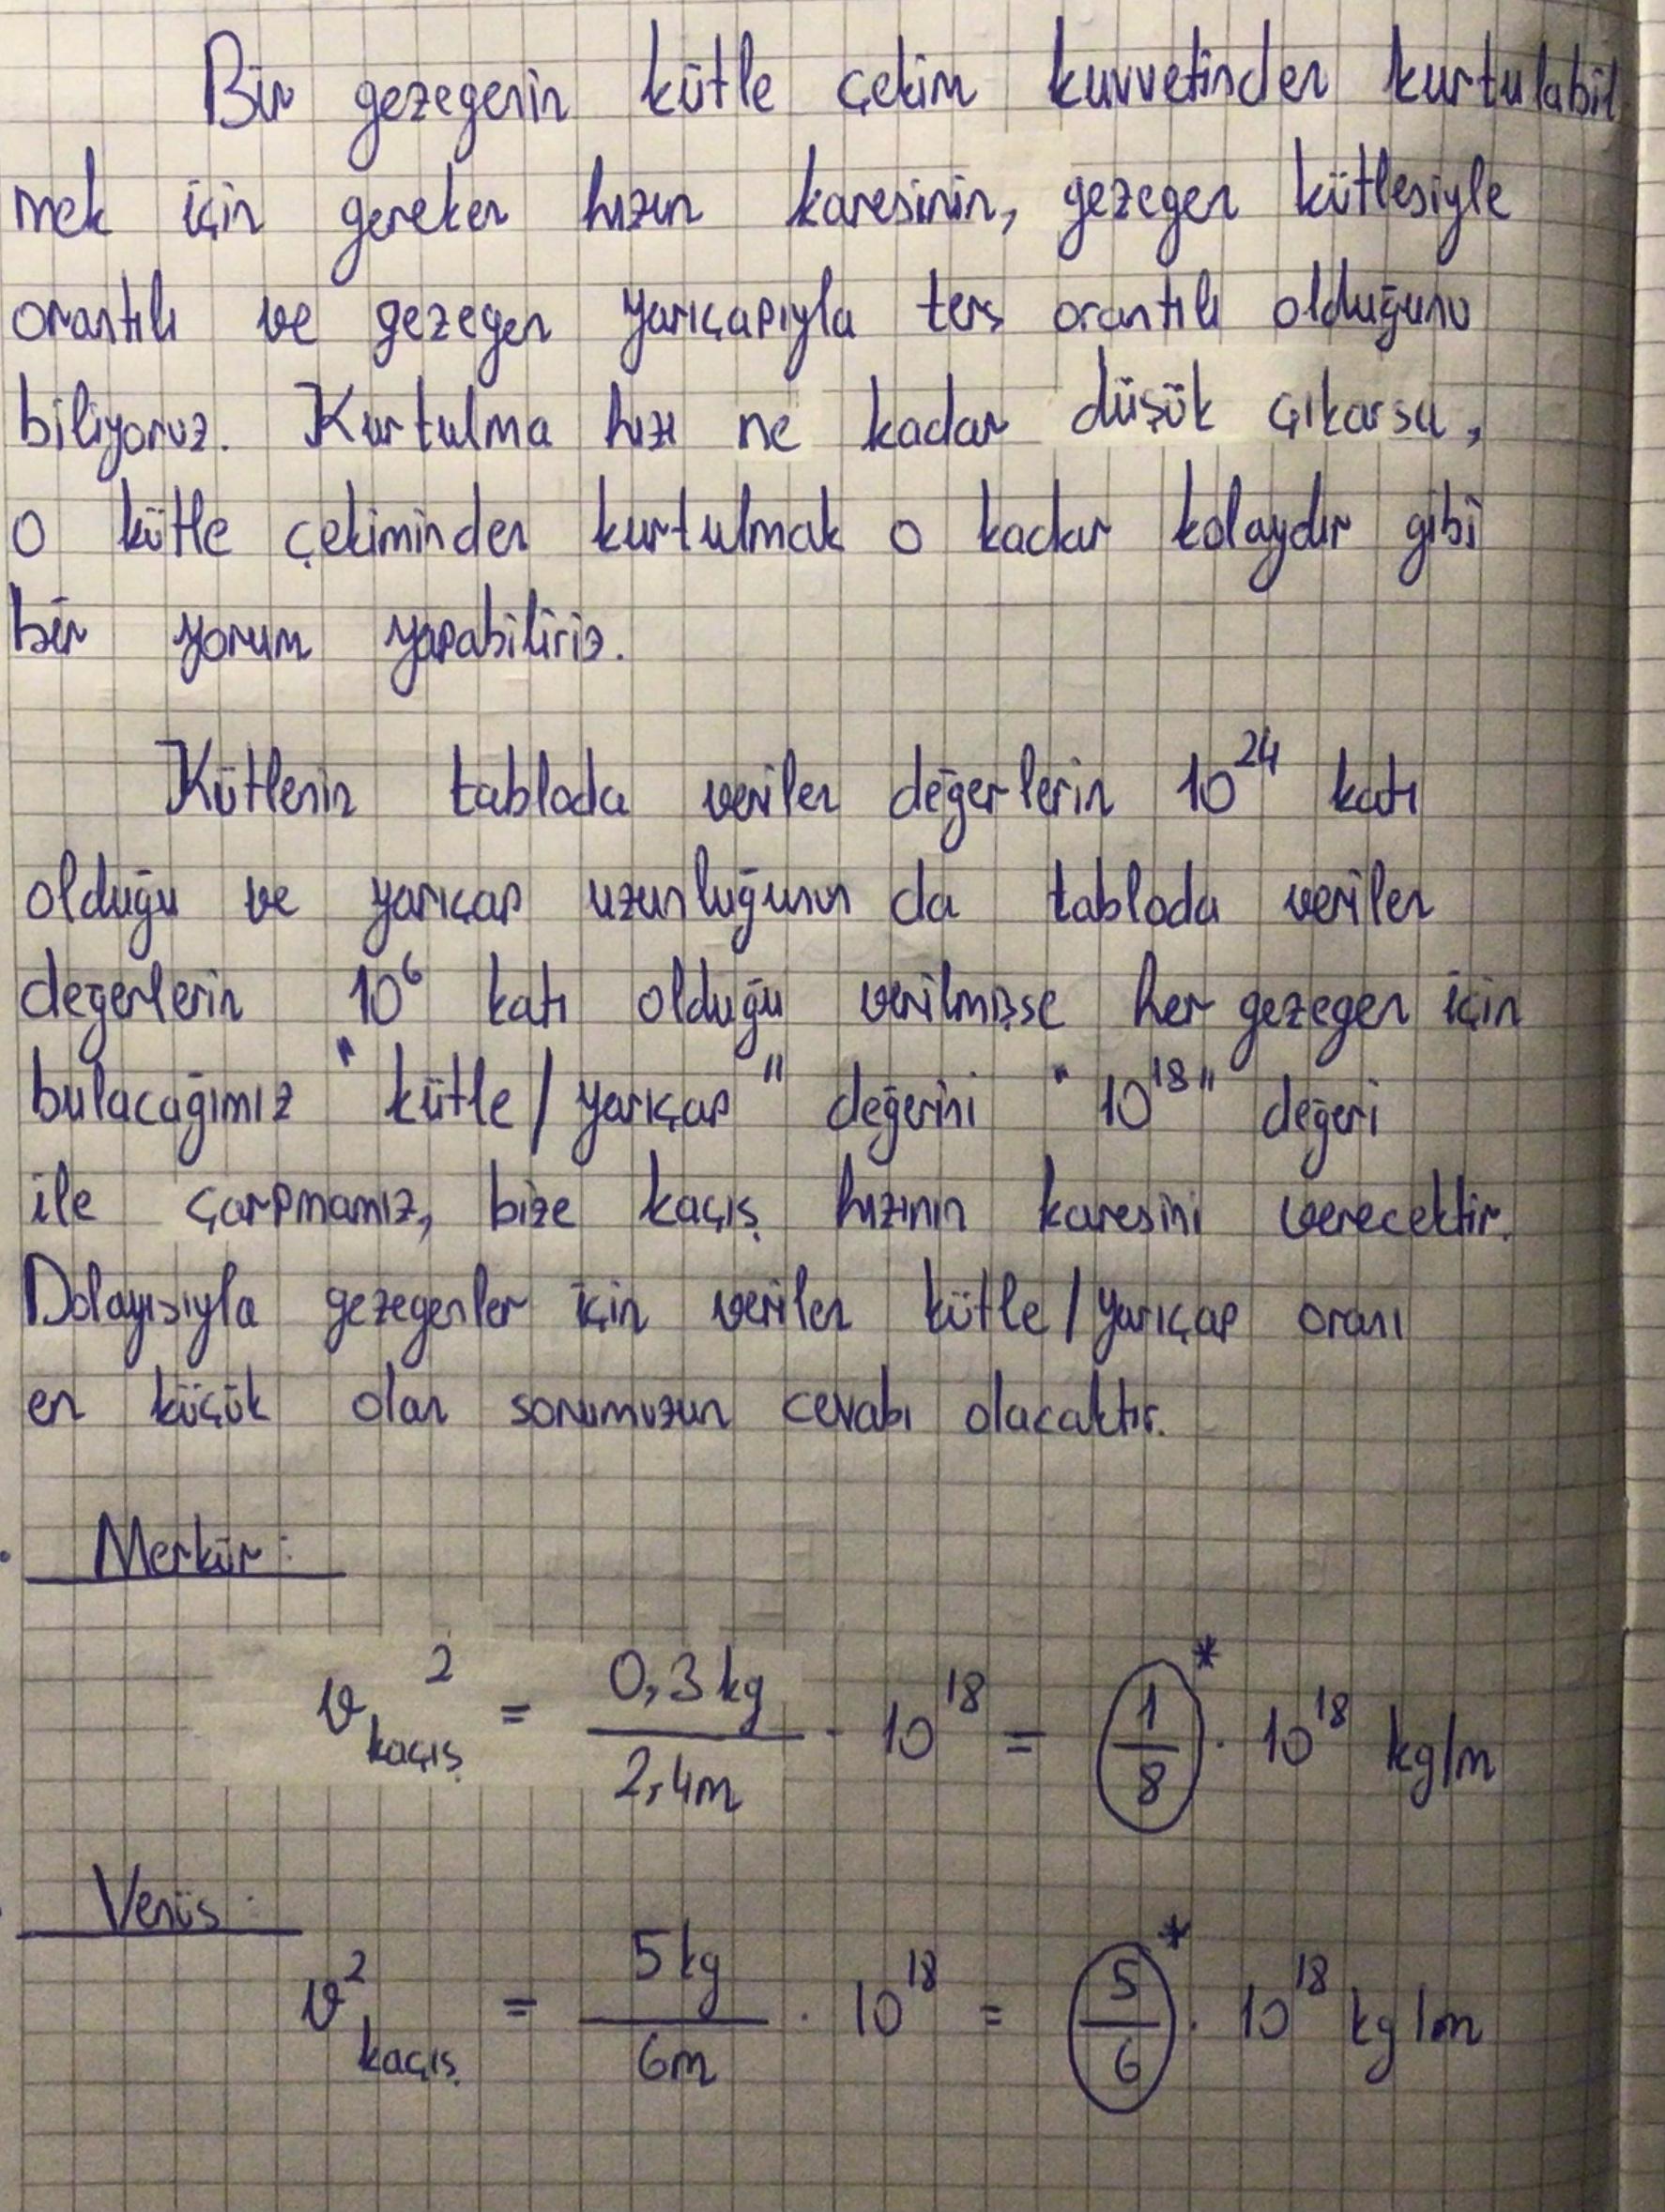 Bir gezegenin kütle çekim kuvvetinden kurtulabil
mek için gereken hızın karesinin, gezegen kütlesiyle
orantılı ve gezegen yarıçapıyla ters orantılı olduğunu
biliyoruz. Kurtulma hızı ne kadar düşük çıkarsa,
o kütle çekiminden kurtulmak o kadar kolaydır gibi
bir yorum yapabiliriz.
Kütlenin tabloda verilen değerlerin 10^24 katı
olduğu ve yarıçap uzunluğunun da tabloda verilen
değerlerin 10^6 katı olduğu verilmişse her gezegen için
bulacağımız "kütle/yarıçap" değerini "10^18" değeri
ile çarpmamız, bize kaçış hızının karesini verecektir.
Dolayısıyla gezegenler için verilen kütle/yarıçap oranı
en küçük olan sorumuzun cevabı olacaktır.
• Merkür:
v_kaçış^2 = 0,3kg / 2,4m · 10^18 = (1/8)* · 10^18 kg/m
Venüs:
v^2_kaçış = 5kg / 6m · 10^18 = (5/6)* · 10^18 kg/m